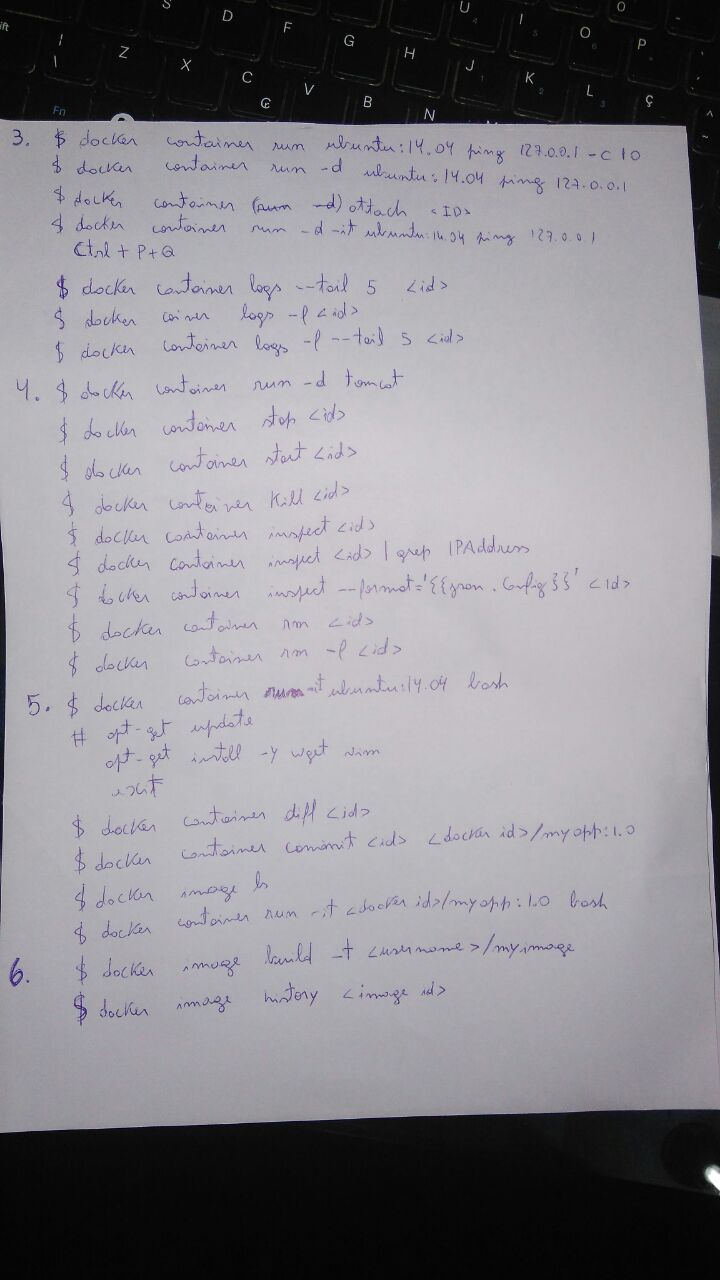 S D F G H U I O O P
Z X C V B N J K L Ç
Fn
3. $ docker container run ubuntu:14.04 ping 127.0.0.1 -c 10
$ docker container run -d ubuntu:14.04 ping 127.0.0.1
$ docker container (run -d) attach <ID>
$ docker container run -d -it ubuntu:14.04 ping 127.0.0.1
Ctrl + P+Q
$ docker container logs --tail 5 <id>
$ docker coiner logs -f <id>
$ docker container logs -f --tail 5 <id>
4. $ docker container run -d tomcat
$ docker container stop <id>
$ docker container start <id>
$ docker container kill <id>
$ docker container inspect <id>
$ docker container inspect <id> | grep IPAddress
$ docker container inspect --format='{{json .Config}}' <id>
$ docker container rm <id>
$ docker container rm -f <id>
5. $ docker container run -it ubuntu:14.04 bash
# apt-get update
apt-get install -y wget vim
exit
$ docker container diff <id>
$ docker container commit <id> <docker id>/myapp:1.0
$ docker image ls
$ docker container run -it <docker id>/myapp:1.0 bash
6. $ docker image build -t <username>/myimage
$ docker image history <image id>